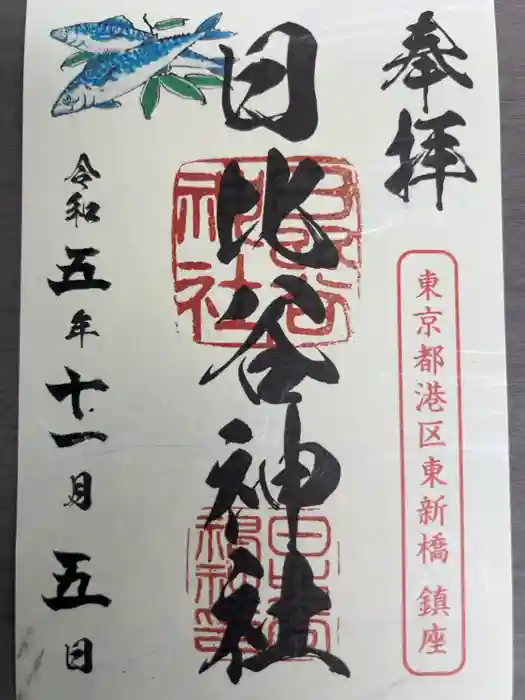 奉拝
東京都港区東新橋 鎮座
日比谷神社
令和五年十一月五日